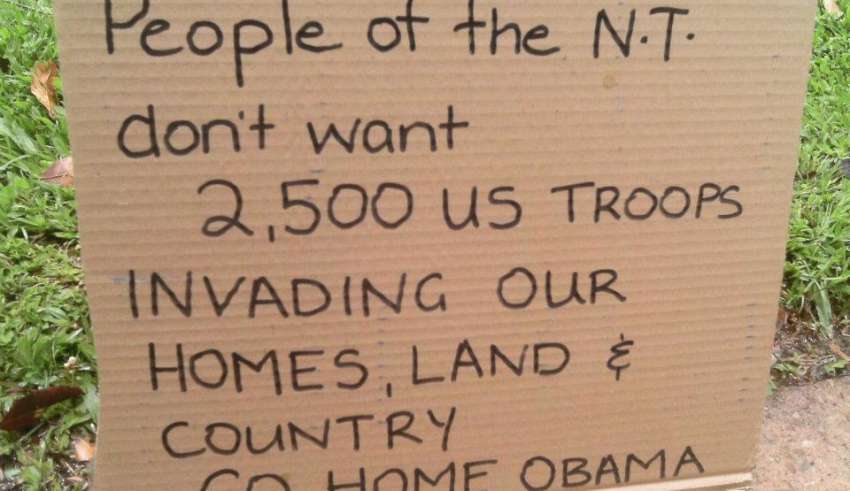 People of the N.T.
don't want
2,500 US TROOPS
INVADING OUR
HOMES, LAND &
COUNTRY
GO HOME OBAMA